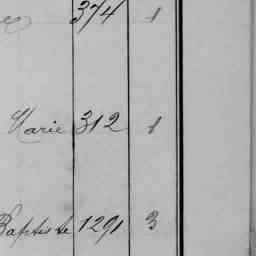 374 1
Marie 312 1
Baptiste 1291 3